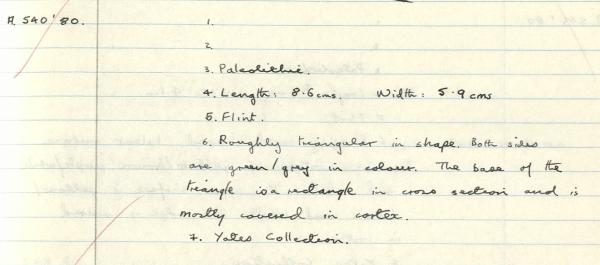 A. 540'80. 1.
2.
3. Paleolithic.
4. Length: 8.6cms. Width: 5.9 cms
5. Flint.
6. Roughly triangular in shape. Both sides
are green/grey in colour. The base of the
triangle is a rectangle in cross section and is
mostly covered in cortex.
7. Yates Collection.